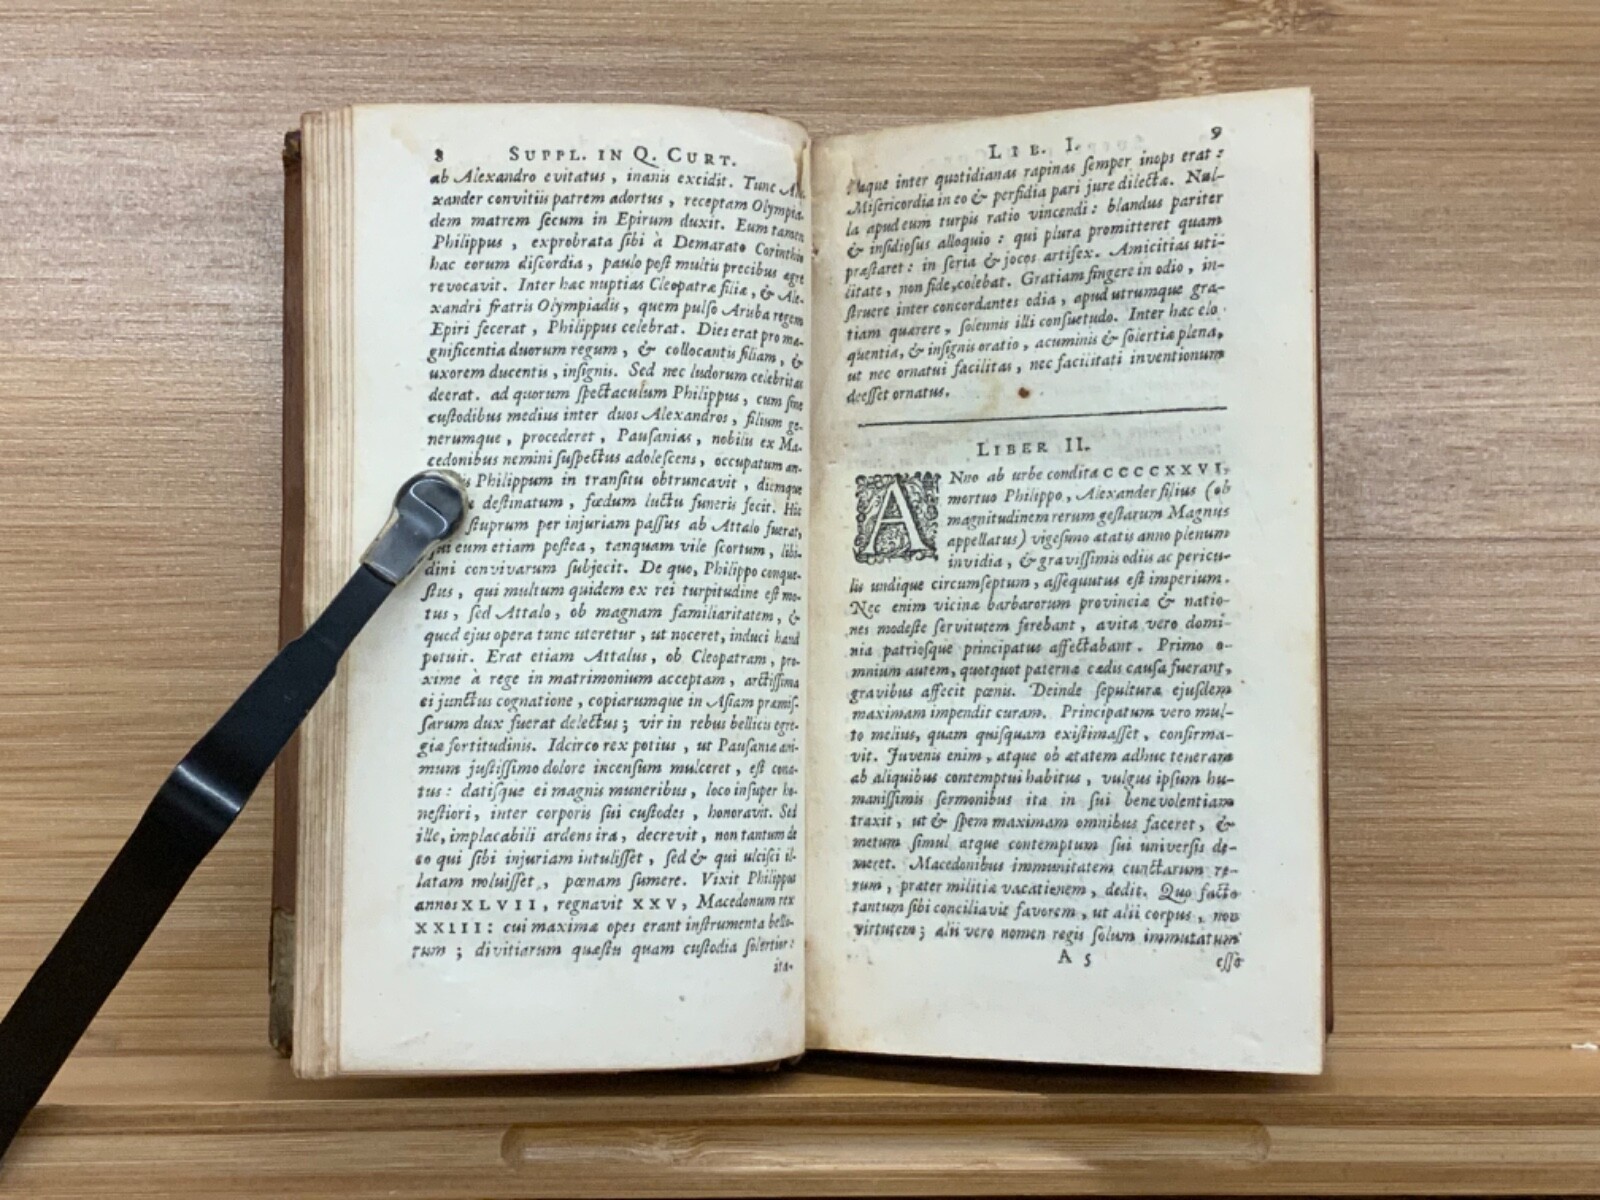 8 SUPPL. IN Q. CURT.
ab Alexandro evitatus, inanis excidit. Tunc Ale-
xander convitiis patrem adortus, receptam Olympia-
dem matrem ſecum in Epirum duxit. Eum tamen
Philippus, exprobrata ſibi à Demarato Corinthio
hac eorum diſcordia, paulo poſt multis precibus ægre
revocavit. Inter hac nuptias Cleopatræ filiæ, & Ale-
xandri fratris Olympiadis, quem pulſo Aruba regem
Epiri fecerat, Philippus celebrat. Dies erat pro ma-
gnificentia duorum regum, & collocantis filiam, &
uxorem ducentis, inſignis. Sed nec ludorum celebritas
deerat. ad quorum ſpectaculum Philippus, cum ſine
cuſtodibus medius inter duos Alexandros, filium ge-
nerumque, procederet, Pauſanias, nobilis ex Ma-
cedonibus nemini ſuſpectus adoleſcens, occupatum an-
Philippum in tranſitu obtruncavit, diemque
deſtinatum, fœdum luctu funeris fecit. Hic
ſtuprum per injuriam paſſus ab Attalo fuerat,
qui eum etiam poſtea, tanquam vile ſcortum, libi-
dini convivarum ſubjecit. De quo, Philippo conque-
ſtus, qui multum quidem ex rei turpitudine eſt mo-
tus, ſed Attalo, ob magnam familiaritatem, &
quod ejus opera tunc uteretur, ut noceret, induci haud
potuit. Erat etiam Attalus, ob Cleopatram, pro-
xime à rege in matrimonium acceptam, arctiſſima
ei junctus cognatione, copiarumque in Aſiam præmiſ-
ſarum dux fuerat delectus; vir in rebus bellicis egre-
giæ fortitudinis. Idcirco rex potius, ut Pauſaniæ ani-
mum juſtiſſimo dolore incenſum mulceret, eſt cona-
tus: datiſque ei magnis muneribus, loco inſuper ho-
neſtiori, inter corporis ſui cuſtodes, honoravit. Sed
ille, implacabili ardens ira, decrevit, non tantum de
eo qui ſibi injuriam intuliſſet, ſed & qui ulciſci il-
latam noluiſſet, pœnam ſumere. Vixit Philippus
annos XLVII, regnavit XXV, Macedonum rex
XXIII: cui maximæ opes erant inſtrumenta bello-
rum; divitiarum quæſtu quam cuſtodia ſolertior:
ita-
LIB. I. 9
Itaque inter quotidianas rapinas ſemper inops erat:
Miſericordia in eo & perfidia pari jure dilectæ. Nul-
la apud eum turpis ratio vincendi: blandus pariter
& inſidioſus alloquio: qui plura promitteret quam
præſtaret: in ſeria & jocos artifex. Amicitias uti-
litate, non fide, colebat. Gratiam fingere in odio, in-
ſtruere inter concordantes odia, apud utrumque gra-
tiam quærere, ſolennis illi conſuetudo. Inter hæc elo-
quentia, & inſignis oratio, acuminis & ſolertiæ plena,
ut nec ornatui facilitas, nec facilitati inventionum
deeſſet ornatus.
LIBER II.
ANno ab urbe condita CCCCXXVI,
mortuo Philippo, Alexander filius (ob
magnitudinem rerum geſtarum Magnus
appellatus) vigeſimo ætatis anno plenum
invidia, & graviſſimis odiis ac pericu-
lis undique circumſeptum, aſſequutus eſt imperium.
Nec enim vicinæ barbarorum provinciæ & natio-
nes modeſte ſervitutem ferebant, avita vero domi-
nia patrioſque principatus affectabant. Primo o-
mnium autem, quotquot paternæ cædis cauſa fuerant,
gravibus affecit pœnis. Deinde ſepulturæ ejuſdem
maximam impendit curam. Principatum vero mul-
to melius, quam quiſquam exiſtimaſſet, confirma-
vit. Juvenis enim, atque ob ætatem adhuc teneram
ab aliquibus contemptui habitus, vulgus ipſum hu-
maniſſimis ſermonibus ita in ſui benevolentiam
traxit, ut & ſpem maximam omnibus faceret, &
metum ſimul atque contemptum ſui univerſis de-
meret. Macedonibus immunitatem cunctarum re-
rum, præter militiæ vacationem, dedit. Quo facto
tantum ſibi conciliavit favorem, ut alii corpus, non
virtutem; alii vero nomen regis ſolum immutatum
A 5 eſſe